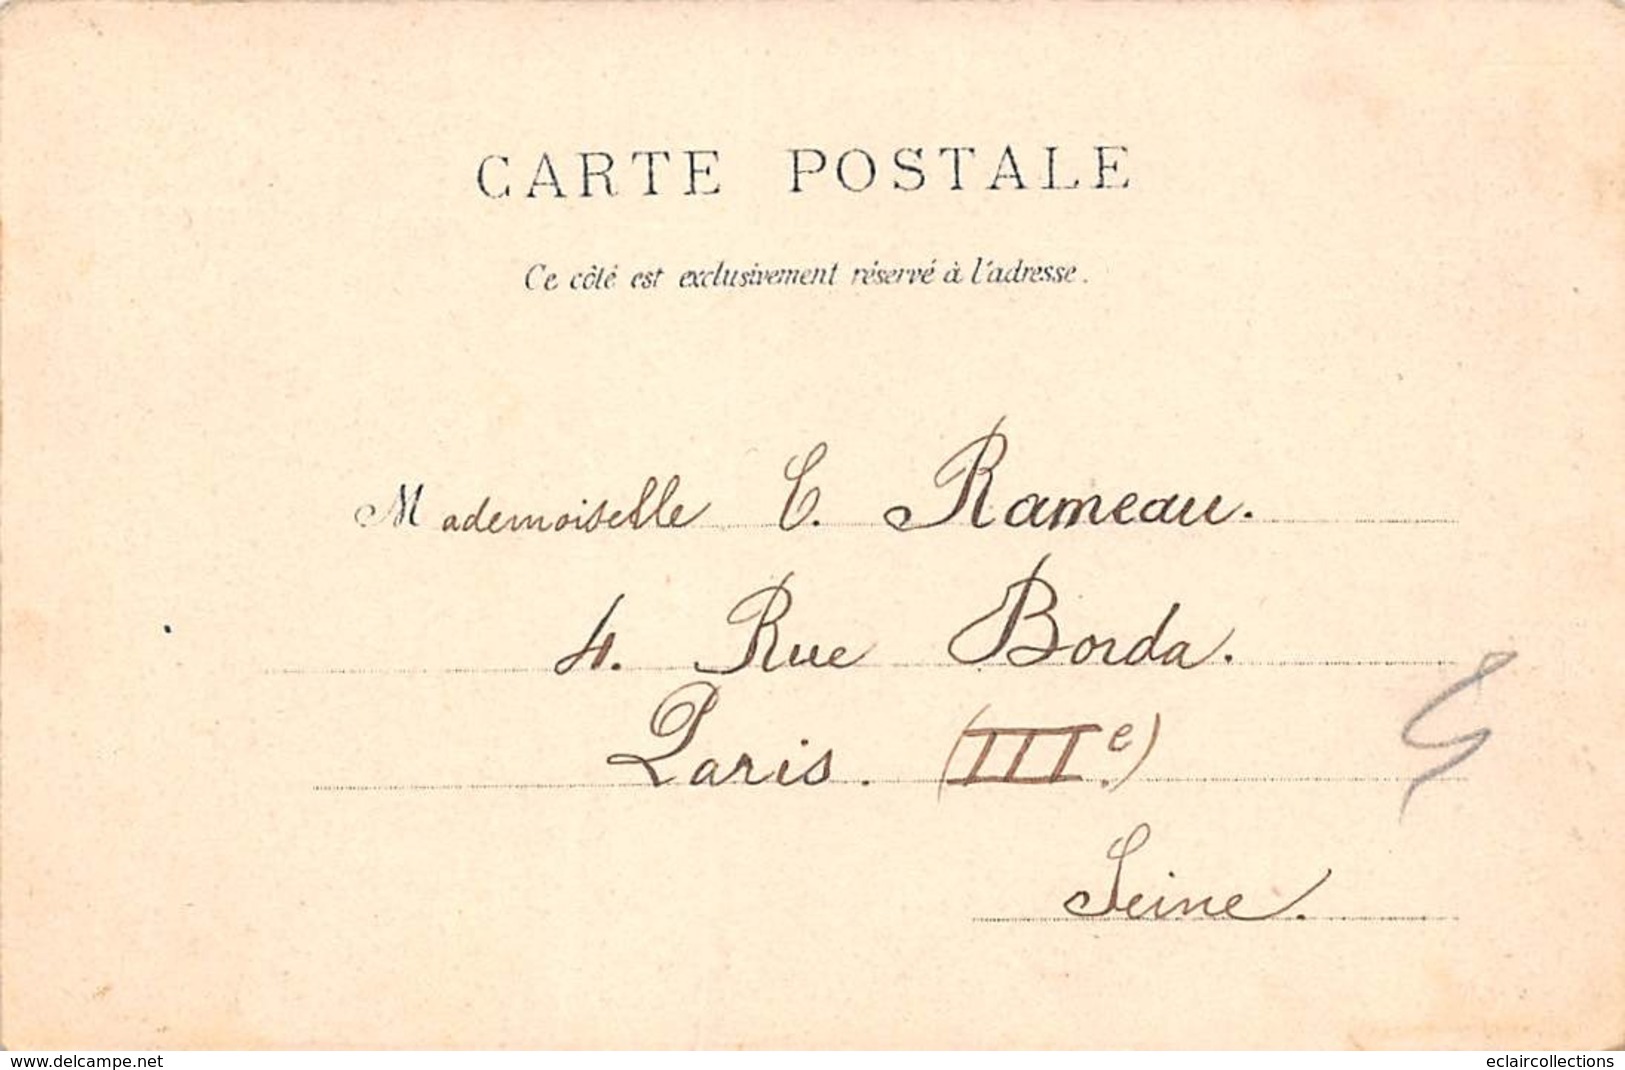 CARTE POSTALE
Ce côté est exclusivement réservé à l'adresse.
Mademoiselle C. Rameau.
4. Rue Borda.
Paris. (IIIe.)
Seine.
www.delcampe.net
eclaircollections